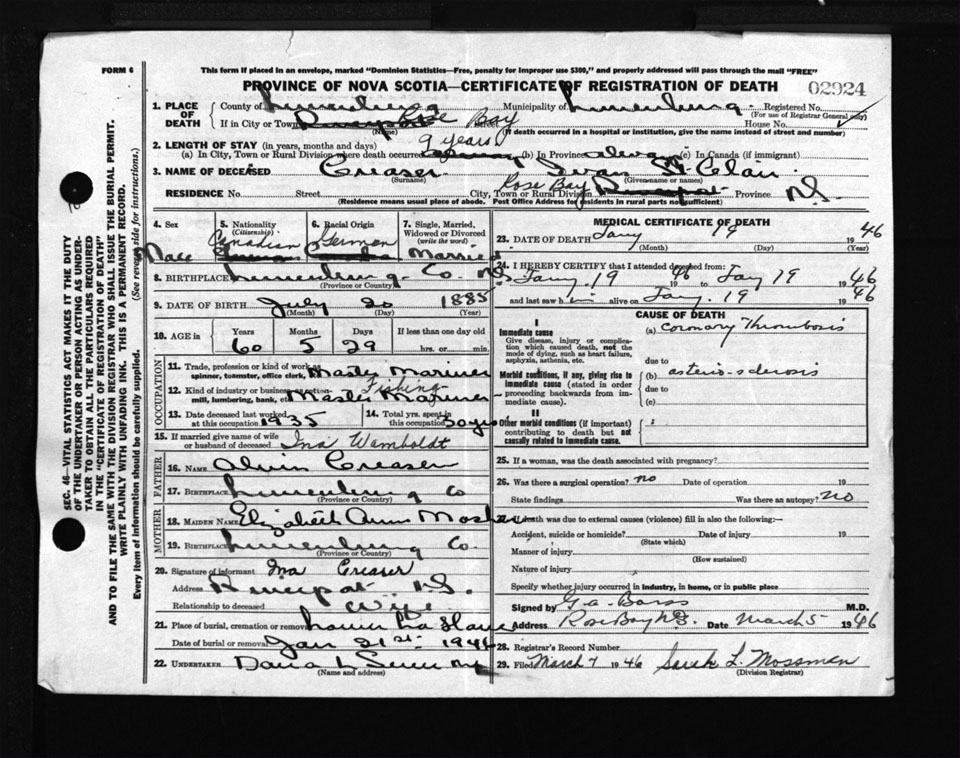 FORM 6
This form if placed in an envelope, marked "Dominion Statistics—Free, penalty for improper use $300," and properly addressed will pass through the mail "FREE"
PROVINCE OF NOVA SCOTIA—CERTIFICATE OF REGISTRATION OF DEATH
02924
1. PLACE OF DEATH County of Lunenburg Municipality of Lunenburg Registered No.
(For use of Registrar General only)
If in City or Town Rose Bay Street House No.
(Name) (If death occurred in a hospital or institution, give the name instead of street and number)
2. LENGTH OF STAY (in years, months and days)
(a) In City, Town or Rural Division where death occurred 9 years (b) In Province always (c) In Canada (if immigrant)
3. NAME OF DECEASED Creaser St Clair
(Surname) (Given name or names)
RESIDENCE No. Street City, Town or Rural Division Rose Bay Province N.S.
(Residence means usual place of abode. Post Office Address for residents in rural parts not sufficient)
4. Sex Male
5. Nationality (Citizenship) Canadian
6. Racial Origin German
7. Single, Married, Widowed or Divorced (write the word) Married
8. BIRTHPLACE Lunenburg Co. N.S.
(Province or Country)
9. DATE OF BIRTH July 20 1885
(Month) (Day) (Year)
10. AGE in Years Months Days If less than one day old
60 5 29 hrs. or min.
OCCUPATION
11. Trade, profession or kind of work as spinner, teamster, office clerk, Master Mariner
12. Kind of industry or business as cotton-mill, lumbering, bank, etc. Fishing Master Mariner
13. Date deceased last worked at this occupation 1935
14. Total yrs. spent in this occupation 30 yrs
15. If married give name of wife or husband of deceased Ina Wamboldt
FATHER
16. NAME Alvin Creaser
17. BIRTHPLACE Lunenburg Co
(Province or Country)
MOTHER
18. MAIDEN NAME Elizabeth Ann Mosher
19. BIRTHPLACE Lunenburg Co.
(Province or Country)
20. Signature of informant Ina Creaser
Address N.S.
Relationship to deceased Wife
21. Place of burial, cremation or removal Lower La Have
Date of burial or removal Jan 21st 1946
22. UNDERTAKER
(Name and address)
MEDICAL CERTIFICATE OF DEATH
23. DATE OF DEATH Jany 19 1946
(Month) (Day) (Year)
24. I HEREBY CERTIFY that I attended deceased from:
Jany. 19 1946 to Jay 19 1946
and last saw him alive on Jany. 19 1946
CAUSE OF DEATH
I
Immediate cause (a) Coronary Thrombosis
Give disease, injury or complication which caused death, not the mode of dying, such as heart failure, asphyxia, asthenia, etc.
due to
Morbid conditions, if any, giving rise to immediate cause (stated in order proceeding backwards from immediate cause). (b) asterio-sclerosis
due to
(c)
II
Other morbid conditions (if important) contributing to death but not causally related to immediate cause.
25. If a woman, was the death associated with pregnancy?
26. Was there a surgical operation? no Date of operation 19
State findings Was there an autopsy? no
27. If death was due to external causes (violence) fill in also the following:—
Accident, suicide or homicide? Date of injury 19
(State which)
Manner of injury
(How sustained)
Nature of injury
Specify whether injury occurred in industry, in home, or in public place
Signed by G.A. Barss M.D.
Address Rose Bay N.S. Date March 5 1946
28. Registrar's Record Number
29. Filed March 7 1946 Sarah L. Mossman
(Division Registrar)
SEC. 46—VITAL STATISTICS ACT MAKES IT THE DUTY
OF THE UNDERTAKER OR PERSON ACTING AS UNDER-
TAKER TO OBTAIN ALL THE PARTICULARS REQUIRED
IN THE "CERTIFICATE OF REGISTRATION OF DEATH"
AND TO FILE THE SAME WITH THE DIVISION REGISTRAR WHO SHALL ISSUE THE BURIAL PERMIT.
WRITE PLAINLY WITH UNFADING INK. THIS IS A PERMANENT RECORD.
Every item of information should be carefully supplied. (See reverse side for instructions.)